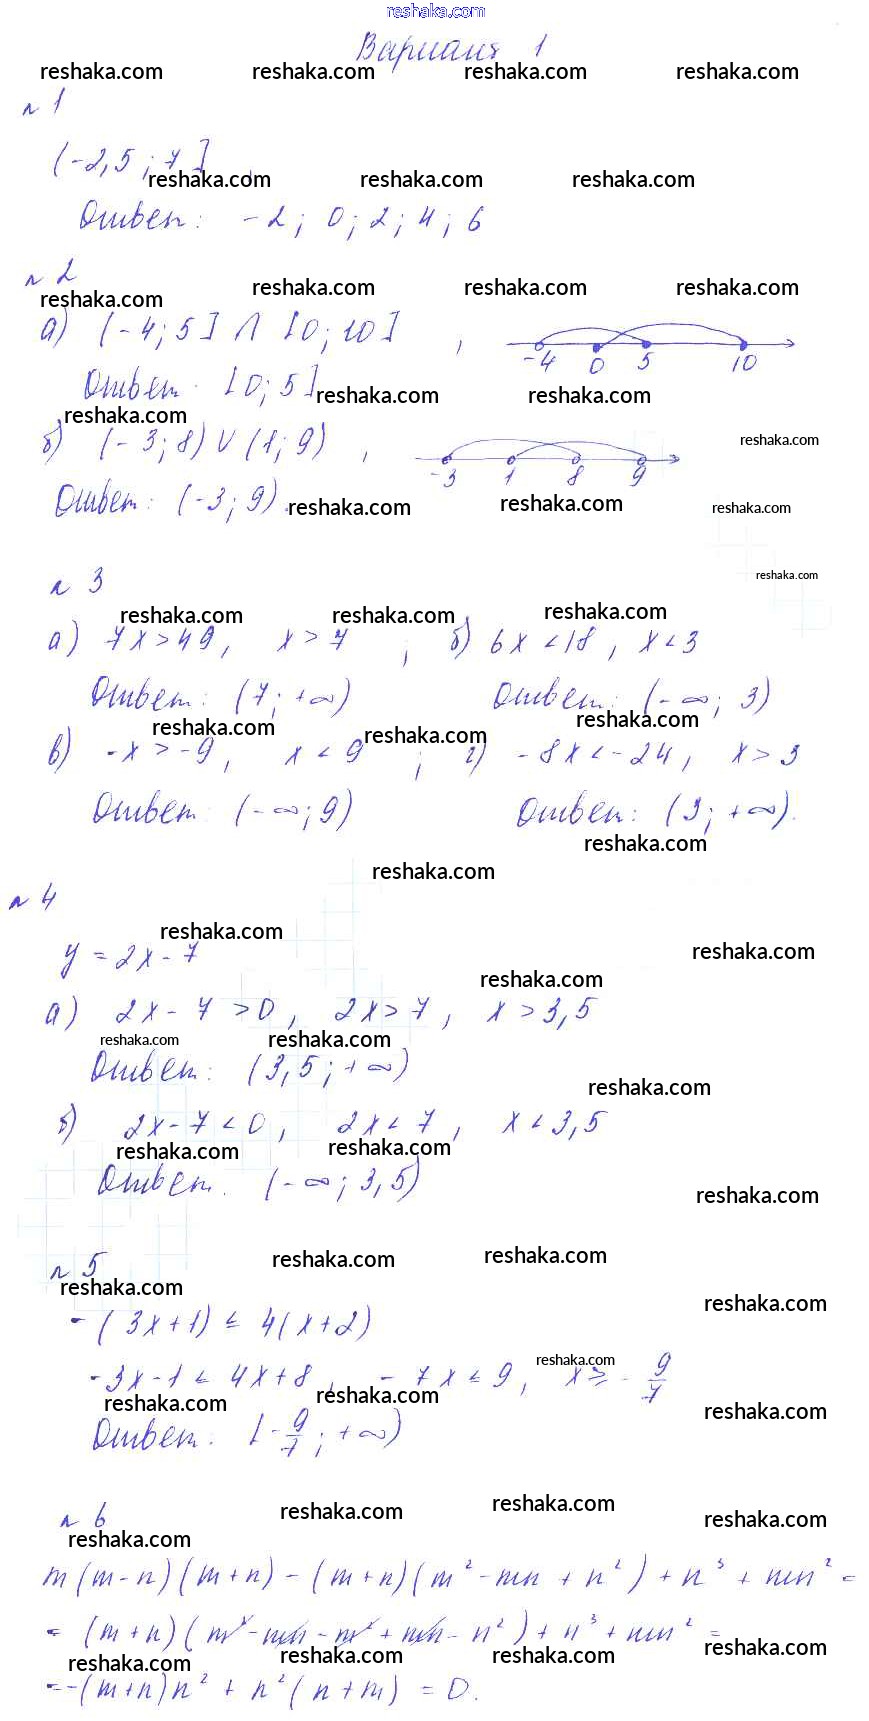 reshaka.com
Вариант 1
reshaka.com reshaka.com reshaka.com reshaka.com
n 1
(-2,5 ; 7]
reshaka.com reshaka.com reshaka.com
Ответ: -2; 0; 2; 4; 6
n 2
reshaka.com reshaka.com reshaka.com reshaka.com
а) (-4; 5] ∩ [0; 10] ,
-4 0 5 10
Ответ: [0; 5]
reshaka.com reshaka.com
reshaka.com
б) (-3; 8) ∪ (1; 9) ,
reshaka.com
-3 1 8 9
Ответ: (-3; 9).
reshaka.com reshaka.com reshaka.com
reshaka.com
n 3
reshaka.com reshaka.com reshaka.com
а) 7x > 49, x > 7 ; б) 6x < 18, x < 3
Ответ: (7; +∞) Ответ: (-∞; 3)
reshaka.com reshaka.com reshaka.com
в) -x > -9, x < 9 ; г) -8x < -24, x > 3
Ответ: (-∞; 9) Ответ: (3; +∞).
reshaka.com
reshaka.com
n 4
reshaka.com
y = 2x - 7
reshaka.com
reshaka.com
а) 2x - 7 > 0, 2x > 7, x > 3,5
reshaka.com reshaka.com
Ответ: (3,5; +∞)
reshaka.com
б) 2x - 7 < 0, 2x < 7, x < 3,5
reshaka.com reshaka.com
Ответ. (-∞; 3,5)
reshaka.com
n 5
reshaka.com reshaka.com
reshaka.com
reshaka.com
-(3x+1) ≤ 4(x+2)
reshaka.com
-3x-1 ≤ 4x+8, -7x ≤ 9, x ≥ -9/7
reshaka.com reshaka.com reshaka.com
Ответ: [-9/7; +∞)
n 6
reshaka.com reshaka.com reshaka.com
reshaka.com
m(m-n)(m+n) - (m+n)(m² - mn + n²) + n³ + mn² =
= (m+n)(m² - mn - m² + mn - n²) + n³ + mn² =
reshaka.com reshaka.com reshaka.com reshaka.com
= -(m+n)n² + n²(n+m) = 0.